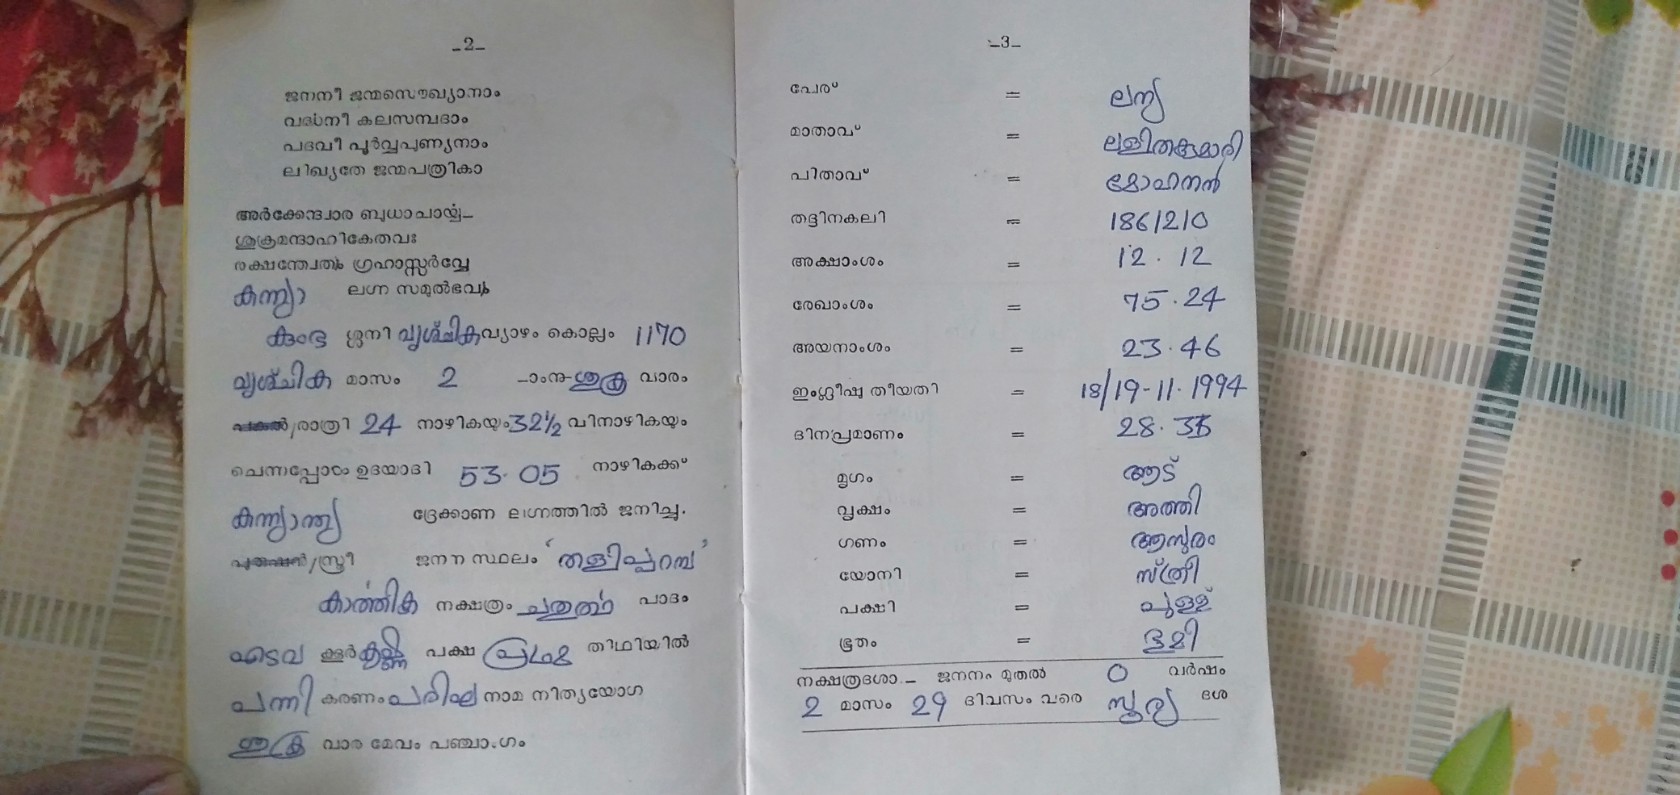 –2–
ജനനീ ജന്മസൌഖ്യാനാം
വർദ്ധനീ കുലസമ്പദാം
പദവീ പൂർവ്വപുണ്യനാം
ലിഖ്യതേ ജന്മപത്രികാ
അർക്കേന്ദ്വാര ബുധാചാര്യ–
ശുക്രമന്ദാഹികേതവഃ
രക്ഷന്ത്വേതം ഗ്രഹാസ്സർവ്വേ
കന്ന്യാ ലഗ്ന സമുൽഭവം
കുംഭ ശ്ശനി വൃശ്ചിക വ്യാഴം കൊല്ലം 1170
വൃശ്ചിക മാസം 2 –ാംനു–ശുക്ര വാരം
പകൽ/രാത്രി 24 നാഴികയും 32½ വിനാഴികയും
ചെന്നപ്പോൾ ഉദയാദി 53.05 നാഴികക്ക്
കന്ന്യാന്ത്യ ദ്രേക്കാണ ലഗ്നത്തിൽ ജനിച്ചു.
പുരുഷൻ/സ്ത്രീ ജനന സ്ഥലം ‘തളിപ്പറമ്പ’
കാർത്തിക നക്ഷത്രം ചതുർത്ഥ പാദം
എടവ ക്കൂർ കൃഷ്ണ പക്ഷ പ്രഥമ തിഥിയിൽ
പന്നി കരണം പരിഘ നാമ നിത്യയോഗ
ശുക്ര വാര മേവം പഞ്ചാംഗം
–3–
പേര് = ലന്യ
മാതാവ് = ലളിതകുമാരി
പിതാവ് = മോഹനൻ
തദ്ദിനകലി = 186/210
അക്ഷാംശം = 12.12
രേഖാംശം = 75.24
അയനാംശം = 23.46
ഇംഗ്ലീഷു തീയതി = 18/19-11-1994
ദിനപ്രമാണം = 28.
മൃഗം = ആട്
വൃക്ഷം = അത്തി
ഗണം = ആസുരം
യോനി = സ്ത്രീ
പക്ഷി = പുള്ള്
ഭൂതം = ഭൂമി
നക്ഷത്രദശാ – ജനനം മുതൽ 0 വർഷം
2 മാസം 29 ദിവസം വരെ സൂര്യ ദശ